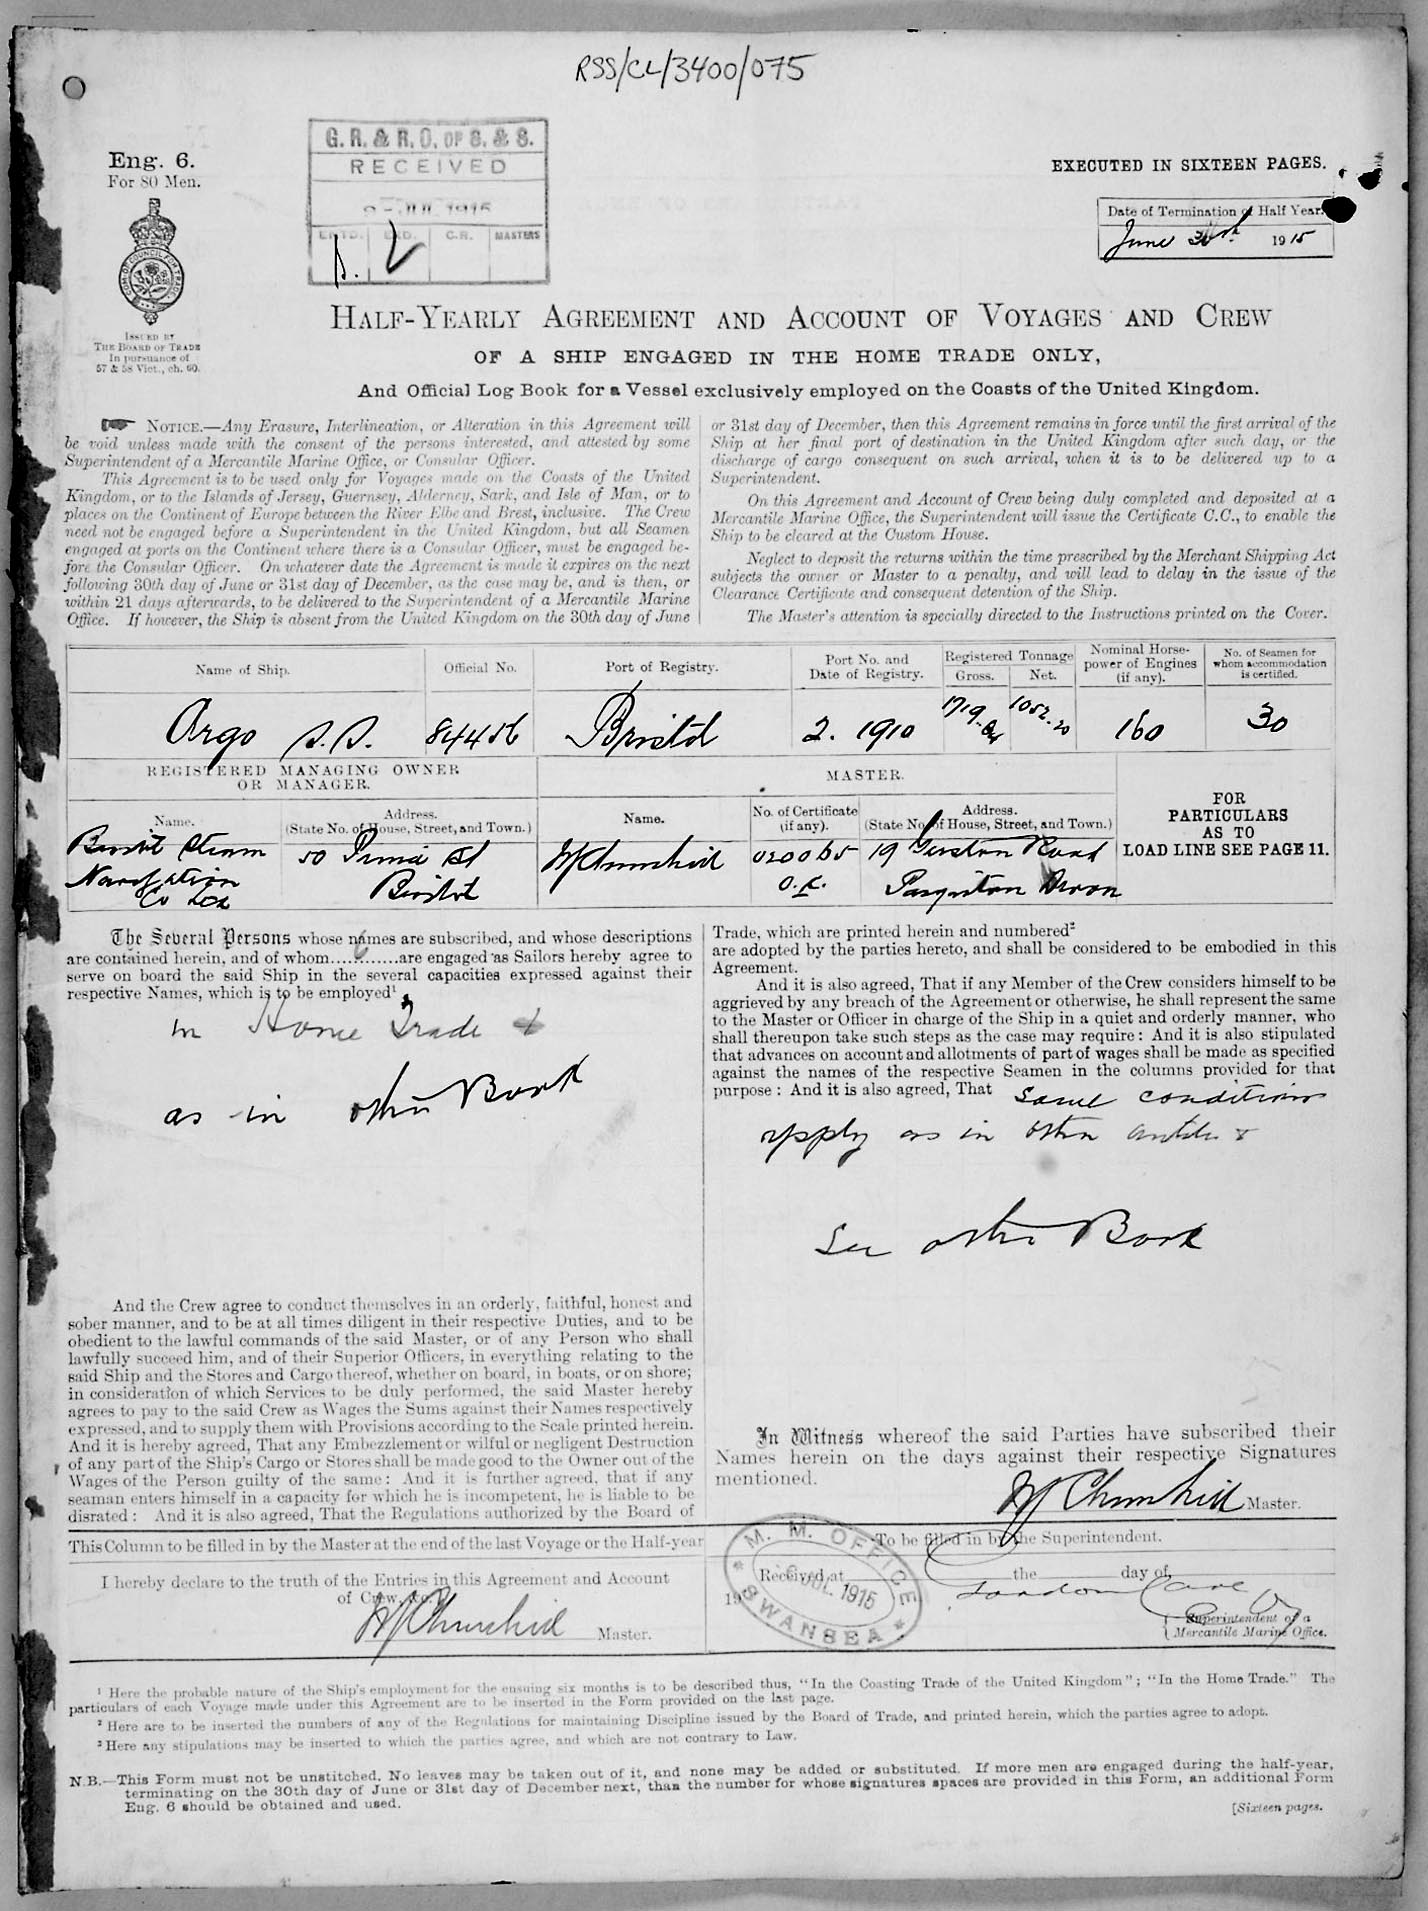 RSS/CL/3400/075
G. R. & R. O. OF S. & S.
RECEIVED
JUL 1915
ENTD. EXD. C.R. MASTERS
Eng. 6.
For 80 Men.
EXECUTED IN SIXTEEN PAGES.
Date of Termination of Half Year.
June 30th 1915
COM. OF COUNCIL FOR TRADE
ISSUED BY
THE BOARD OF TRADE
In pursuance of
57 & 58 Vict., ch. 60.
HALF-YEARLY AGREEMENT AND ACCOUNT OF VOYAGES AND CREW
OF A SHIP ENGAGED IN THE HOME TRADE ONLY,
And Official Log Book for a Vessel exclusively employed on the Coasts of the United Kingdom.
NOTICE.—Any Erasure, Interlineation, or Alteration in this Agreement will
be void unless made with the consent of the persons interested, and attested by some
Superintendent of a Mercantile Marine Office, or Consular Officer.
This Agreement is to be used only for Voyages made on the Coasts of the United
Kingdom, or to the Islands of Jersey, Guernsey, Alderney, Sark, and Isle of Man, or to
places on the Continent of Europe between the River Elbe and Brest, inclusive. The Crew
need not be engaged before a Superintendent in the United Kingdom, but all Seamen
engaged at ports on the Continent where there is a Consular Officer, must be engaged be-
fore the Consular Officer. On whatever date the Agreement is made it expires on the next
following 30th day of June or 31st day of December, as the case may be, and is then, or
within 21 days afterwards, to be delivered to the Superintendent of a Mercantile Marine
Office. If however, the Ship is absent from the United Kingdom on the 30th day of June
or 31st day of December, then this Agreement remains in force until the first arrival of the
Ship at her final port of destination in the United Kingdom after such day, or the
discharge of cargo consequent on such arrival, when it is to be delivered up to a
Superintendent.
On this Agreement and Account of Crew being duly completed and deposited at a
Mercantile Marine Office, the Superintendent will issue the Certificate C.C., to enable the
Ship to be cleared at the Custom House.
Neglect to deposit the returns within the time prescribed by the Merchant Shipping Act
subjects the owner or Master to a penalty, and will lead to delay in the issue of the
Clearance Certificate and consequent detention of the Ship.
The Master's attention is specially directed to the Instructions printed on the Cover.
Name of Ship. Official No. Port of Registry. Port No. and Date of Registry. Registered Tonnage Gross. Net. Nominal Horse-power of Engines (if any). No. of Seamen for whom accommodation is certified.
Argo S.S. 84456 Bristol 2. 1910 1719. 1052.20 160 30
REGISTERED MANAGING OWNER OR MANAGER.
MASTER.
FOR PARTICULARS AS TO LOAD LINE SEE PAGE 11.
Name. Address. (State No. of House, Street, and Town.) Name. No. of Certificate (if any). Address. (State No. of House, Street, and Town.)
Bristol Steam 50 Prince St W Churchill 020065 19 Road
Navigation Bristol Paignton Devon
Co Ltd
The Several Persons whose names are subscribed, and whose descriptions
are contained herein, and of whom 6 are engaged as Sailors hereby agree to
serve on board the said Ship in the several capacities expressed against their
respective Names, which is to be employed¹
in Home Trade &
as in other Book
And the Crew agree to conduct themselves in an orderly, faithful, honest and
sober manner, and to be at all times diligent in their respective Duties, and to be
obedient to the lawful commands of the said Master, or of any Person who shall
lawfully succeed him, and of their Superior Officers, in everything relating to the
said Ship and the Stores and Cargo thereof, whether on board, in boats, or on shore;
in consideration of which Services to be duly performed, the said Master hereby
agrees to pay to the said Crew as Wages the Sums against their Names respectively
expressed, and to supply them with Provisions according to the Scale printed herein.
And it is hereby agreed, That any Embezzlement or wilful or negligent Destruction
of any part of the Ship's Cargo or Stores shall be made good to the Owner out of the
Wages of the Person guilty of the same: And it is further agreed, that if any
seaman enters himself in a capacity for which he is incompetent, he is liable to be
disrated: And it is also agreed, That the Regulations authorized by the Board of
Trade, which are printed herein and numbered²
are adopted by the parties hereto, and shall be considered to be embodied in this
Agreement.
And it is also agreed, That if any Member of the Crew considers himself to be
aggrieved by any breach of the Agreement or otherwise, he shall represent the same
to the Master or Officer in charge of the Ship in a quiet and orderly manner, who
shall thereupon take such steps as the case may require: And it is also stipulated
that advances on account and allotments of part of wages shall be made as specified
against the names of the respective Seamen in the columns provided for that
purpose: And it is also agreed, That same conditions
apply as in other articles &
See other Book
In Witness whereof the said Parties have subscribed their
Names herein on the days against their respective Signatures
mentioned.
W Churchill Master.
This Column to be filled in by the Master at the end of the last Voyage or the Half-year
I hereby declare to the truth of the Entries in this Agreement and Account
of Crew, &c.
W Churchill Master.
To be filled in by the Superintendent.
Received at the day of
19
Superintendent of a
Mercantile Marine Office.
M. M. OFFICE
JUL. 1915
SWANSEA
¹ Here the probable nature of the Ship's employment for the ensuing six months is to be described thus, "In the Coasting Trade of the United Kingdom"; "In the Home Trade." The
particulars of each Voyage made under this Agreement are to be inserted in the Form provided on the last page.
² Here are to be inserted the numbers of any of the Regulations for maintaining Discipline issued by the Board of Trade, and printed herein, which the parties agree to adopt.
³ Here any stipulations may be inserted to which the parties agree, and which are not contrary to Law.
N.B.—This Form must not be unstitched. No leaves may be taken out of it, and none may be added or substituted. If more men are engaged during the half-year,
terminating on the 30th day of June or 31st day of December next, than the number for whose signatures spaces are provided in this Form, an additional Form
Eng. 6 should be obtained and used.
[Sixteen pages.